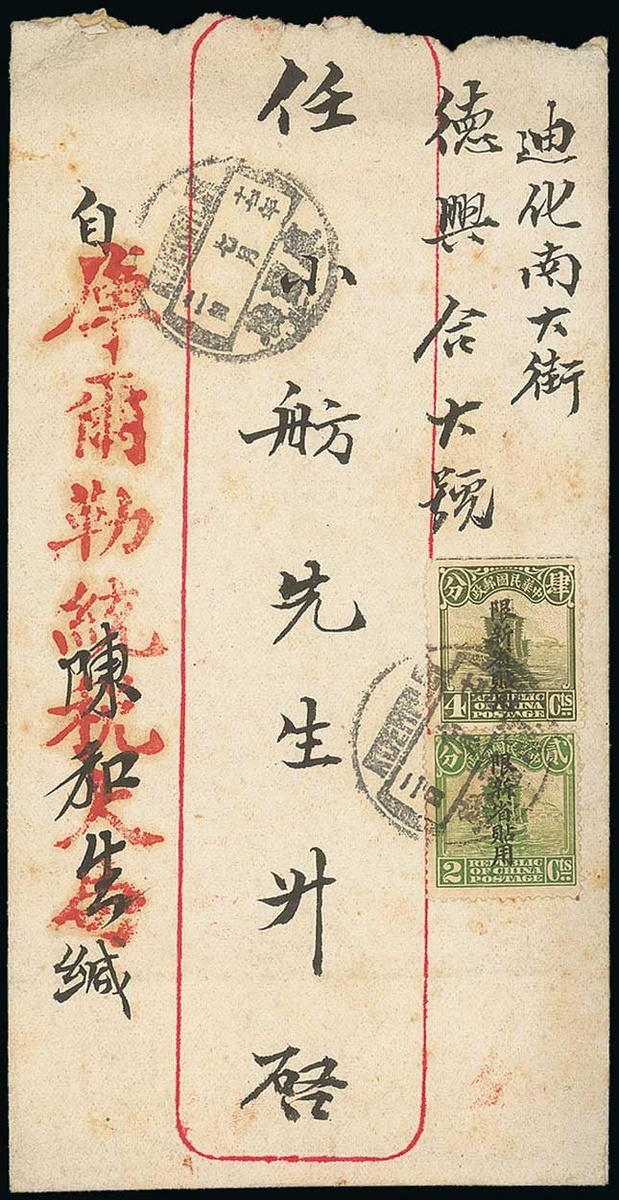 迪化南大街
德興合大號
任小舫先生升啓
自
庫爾勒統税公局
陳和生緘
中華民國郵政
分 肆
限新省貼用
4 Cts
REPUBLIC
OF CHINA
POSTAGE
中華民國郵政
分 貳
限新省貼用
2 Cts
REPUBLIC
OF CHINA
POSTAGE
七月